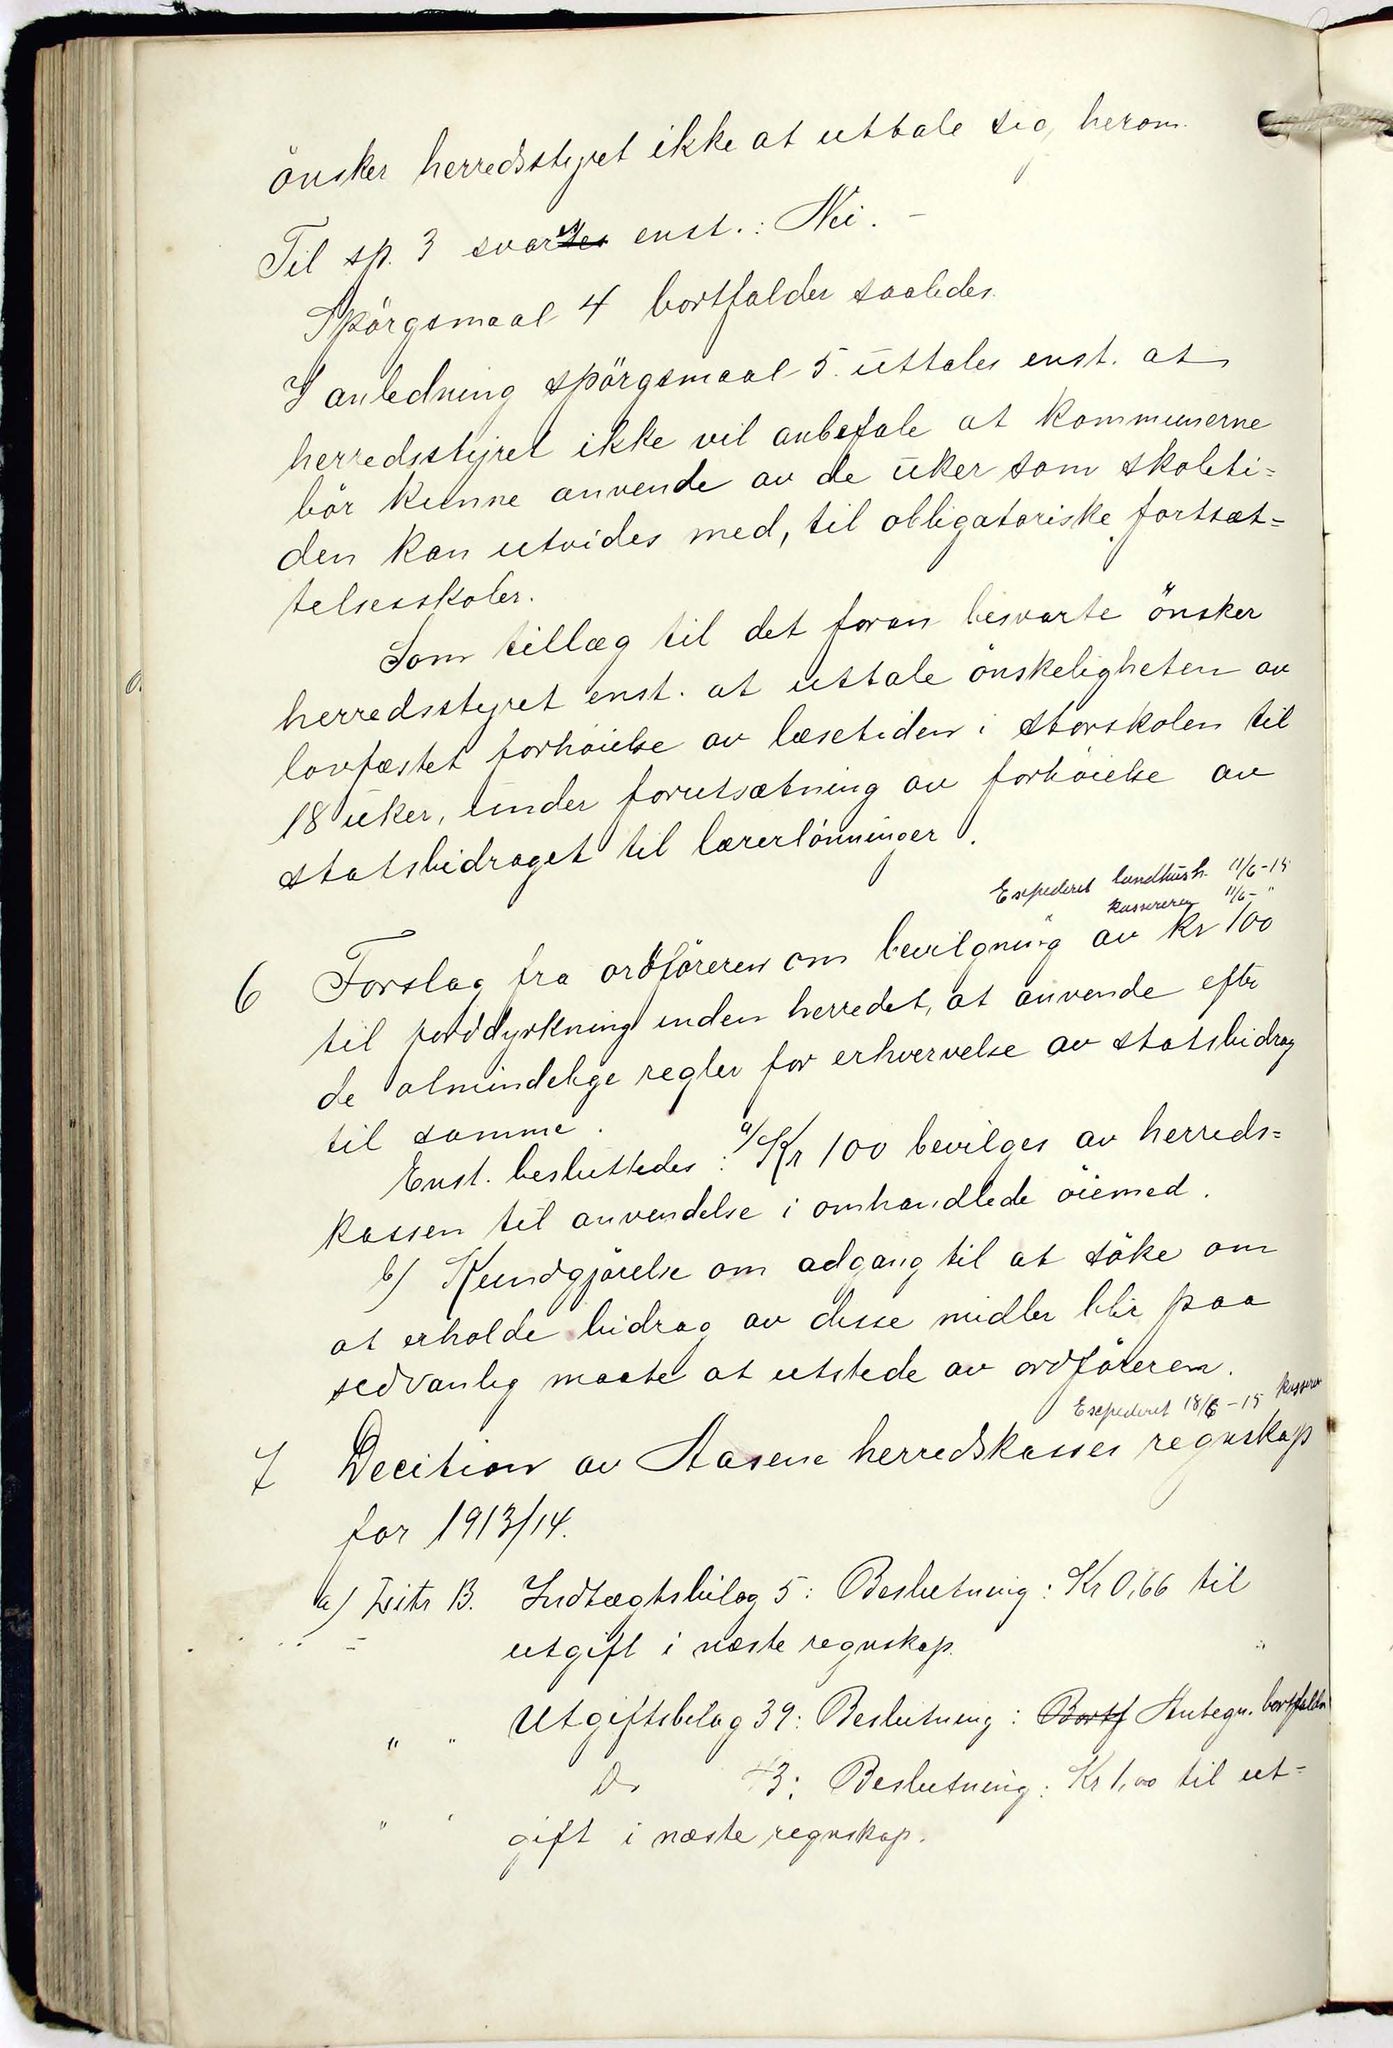 önsker herredsstyret ikke at uttale sig herom.
Til sp. 3 svares enst.: Nei. –
Spörgsmaal 4 bortfalder saaledes.
I anledning spörgsmaal 5 uttales enst. at
herredsstyret ikke vil anbefale at kommunerne
bör kunne anvende av de uker som skoleti=
den kan utvides med, til obligatoriske fortsæt=
telsesskoler.
Som tillæg til det foran besvarte önsker
herredsstyret enst. at uttale önskeligheten av
lovfæstet forhöielse av læsetiden i storskolen til
18 uker, under forutsætning av forhöielse av
statsbidraget til lærerlönninger.
Expederet landhush. 11/6-15
kassereren 11/6- "
6 Forslag fra ordföreren om bevilgning av kr 100
til jorddyrkning inden herredet, at anvende efter
de almindelige regler for erhvervelse av statsbidrag
til samme.
Enst. besluttedes: a/ Kr 100 bevilges av herreds=
kassen til anvendelse i omhandlede öiemed.
b/ Kundgjörelse om adgang til at söke om
at erholde bidrag av disse midler blir paa
sedvanlig maate at utstede av ordföreren.
Expederet 18/6-15 kasserer
7 Decition av Aasene herredskasses regnskap
for 1913/14.
a/ Litr B. Indtægtsbilag 5: Beslutning: Kr 0,66 til
utgift i næste regnskap.
" " Utgiftsbilag 39: Beslutning: Bortf Antegn. bortfalder
" " Do 43: Beslutning: Kr 1,00 til ut=
gift i næste regnskap.